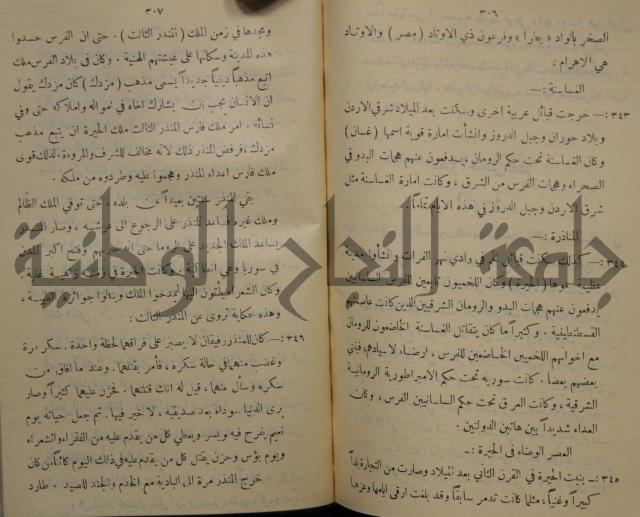 ٣٠٦
الصخر بالواد « يارا » وفرعون ذي الاوتاد ( مصر ) والاوتاد
هي الاهرام :
الغساسنة :—
٣٤٣ :— خرجت قبائل عربية اخرى وسكنت بعد الميلاد شرقي الاردن
وبلاد حوران وجبل الدروز وانشأت امارة قوية اسمها ( غسان )
وكان الغساسنة تحت حكم الرومان ويدفعون عنهم هجمات البدو في
الصحراء وهجمات الفرس من الشرق ، وكانت امارة الغساسنة مثل
شرق الاردن وجبل الدروز في هذه الايام تماماً .
المناذرة :—
٣٤٤ :— كذلك سكنت قبائل في وادي نهر الفرات و نشأوا مدينة
عظيمة اسمها ( الحيرة ) وكان اللخميون تابعين للفرس الساسانيين
يدفعون عنهم هجمات البدو والرومان الشرقيين الذين كانت عاصمتهم
القسطنطينية . وكثيراً ما كان يتقاتل الغساسنة الخاضعون للرومان
مع اخوانهم اللخميين الخاضعين للفرس . ارضاء لاسيادهم، فيفني
بعضهم بعضاً . كانت سوريه تحت حكم الامبراطورية الرومانية
الشرقية ، وكانت العرق تحت حكم الساسانيين الفرس ، وكان
العداء شديداً بين هاتين الدولتين .
العصر الوضاء في الحيرة :—
٣٤٥ :— بنيت الحيرة في القرن الثاني بعد الميلاد وصارت من التجارة بلداً
كبيراً وغنياً، مثلما كانت تدمر سابقاً وقد بلغت ارقى ايامها وعزها
٣٠٧
ومجدها في زمن الملك ( المنذر الثالث ) . حتى ان الفرس حسدوا
هذه المدينة وسكانها على عيشتهم الهنية . وكان في بلاد الفرس ملك
اتبع مذهباً دينياً جديداً يسمى مذهب ( مزدك ) كان مزدك يقول
ان الانسان يجب ان يشارك اخاه في امواله واملاكه حتى وفي
نسائه . امر ملك فارس المنذر الثالث ملك الحيرة ان يتبع مذهب
مزدك ، فرفض المنذر ذلك لانه مخالف للشرف والمروءة. لذلك قوى
ملك فارس اعداء المنذر وهجموا عليه وطردوه من ملكه .
بقي المنذر سنتين بعيداً عن بلده ، حتى توفي الملك الظالم
وملك غيره فساعد المنذر على الرجوع الى عرشه ، وصار المنذر
يساعد الملك الجديد على الروما حتى انه وفتح اكبر المدن
في سوريا وهي انطاكية . وكانت الحيرة في زمنه
وكان الشعراء يأتون اليها ليمدحوا الملك وينالوا جوائزه النفيسة ،
وهذه حكاية تروى عن المنذر الثالث :
٣٤٦ :— كان للمنذر رفيقان لا يصبر على فراقهما لحظة واحدة . سكر مرة
وغضب منهما في حالة سكره ، فأمر بقتلهما . وعند ما افاق من
سكره وسأل عنهما، قيل له انك قتلتهما . فحزن عليهما كثيراً وصار
يرى الدنيا سوداء بعد صديقيه ، لا خير فيها. ثم جعل حياته يوم
نعيم يفرح فيه ويسر ويعطي كل من يقدم عليه من الفقراء والشعراء
ويوم بؤس وحزن يقتل كل من يقدم عليه في ذلك اليوم كائناً من كان
خرج المنذر مرة الى البادية مع الخدم والجند للصيد . طارد
جامعة النجاح الوطنية